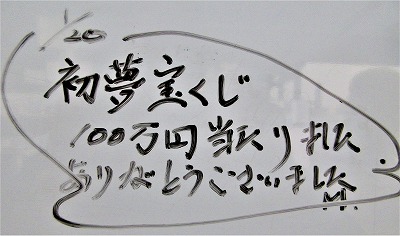 1/20
初夢宝くじ
100万円当りました
ありがとうございました
M.